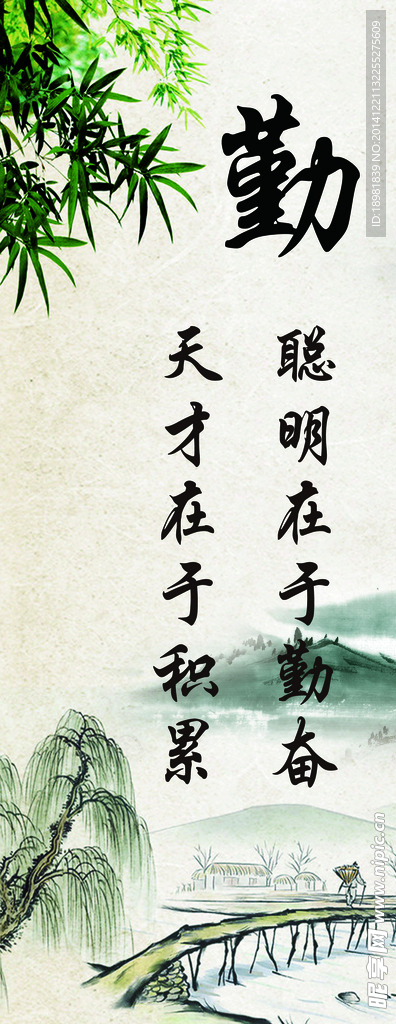 勤
聪明在于勤奋
天才在于积累
ID:18981839 NO.20141221132255275609
昵享网 www.nipic.cn